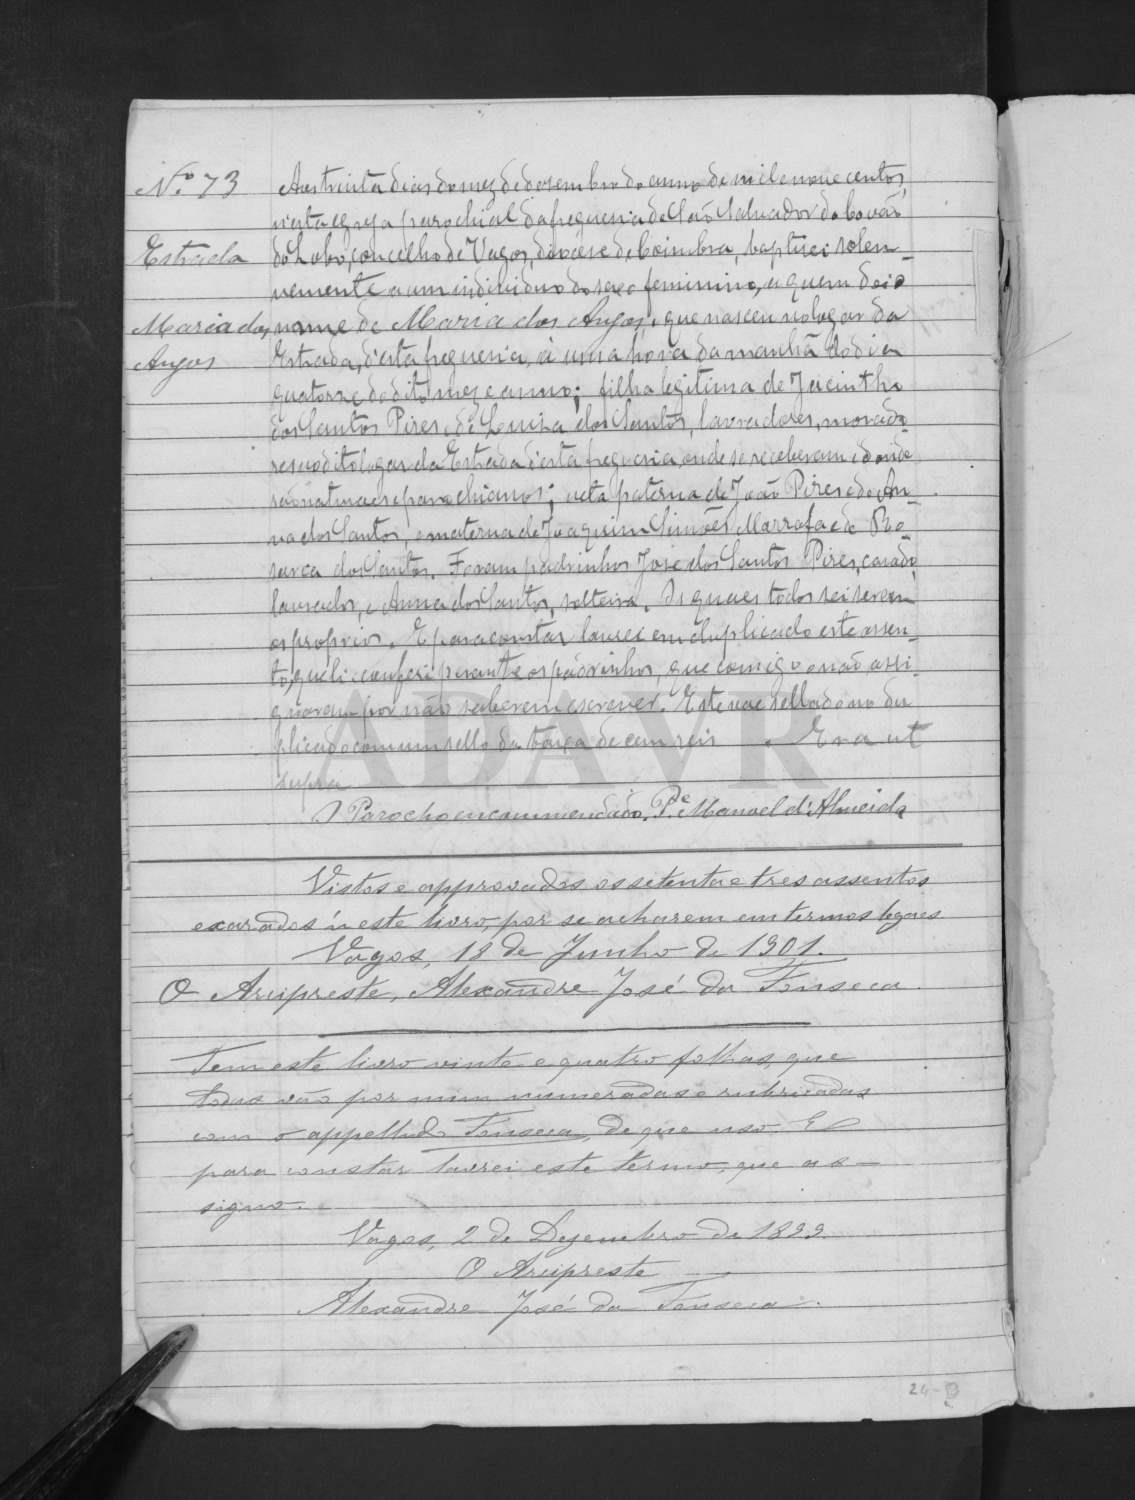 N.º 73
Estrada
Maria dos
Anjos
Aos trinta dias do mez de dezembro do anno de mil e nove centos,
n'esta egreja parochial da freguesia de São Salvador do Covão
do Lobo, concelho de Vagos, diocese de Coimbra, baptisei solem-
nemente a um individuo do sexo feminino, a quem dei o
nome de Maria dos Anjos, que nasceu no logar da
Estrada, d'esta freguesia, á uma hora da manhã do dia
quatorze do dito mez e anno; filha legitima de Jacintho
dos Santos Pires e de Luiza dos Santos, lavradores, morado-
res no dito logar da Estrada d'esta freguesia, onde se receberam e donde
são naturaes e parochianos; neta paterna de João Pires e de An-
na dos Santos, e materna de Joaquim Simões Marrafa e de Ro-
sarea dos Santos. Foram padrinhos José dos Santos Pires, casado,
lavrador, e Anna dos Santos, solteira. Os quaes todos sei serem
os proprios. E para constar lavrei em duplicado este assen-
to, que li e conferi perante os padrinhos, que comigo não assi-
gnaram por não saberem escrever. Este vae sellado no du
plicado com um sello da taxa de cem reis. Era ut
supra
O Parocho encommendado, P.e Manoel d'Almeida
Vistos e approvados os setenta e tres assentos
exarados n'este livro, por se acharem em termos legaes
Vagos, 18 de Junho de 1901.
O Arcipreste, Alexandre José da Fonseca.
Tem este livro vinte e quatro folhas, que
todas vão por mim numeradas e rubricadas
com o appellido Fonseca, de que uso. E
para constar lavrei este termo, que as-
signo.
Vagos, 2 de Dezembro de 1899.
O Arcipreste
Alexandre José da Fonseca.
ADAVR
24-B